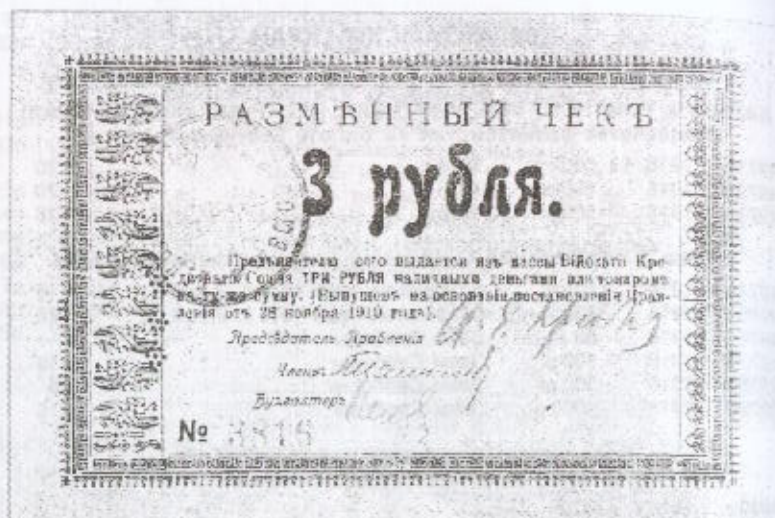 РАЗМѢННЫЙ ЧЕКЪ
3 рубля.
Предъявителю сего выдается изъ кассы Бійскаго Кре-
дитнаго Союза ТРИ РУБЛЯ наличными деньгами или товаромъ
на ту-же сумму. (Выпущенъ на основаніи постановленія Прав-
ленія отъ 28 ноября 1919 года).
Предсѣдатель Правленія
Члены
Бухгалтеръ
№ 3816